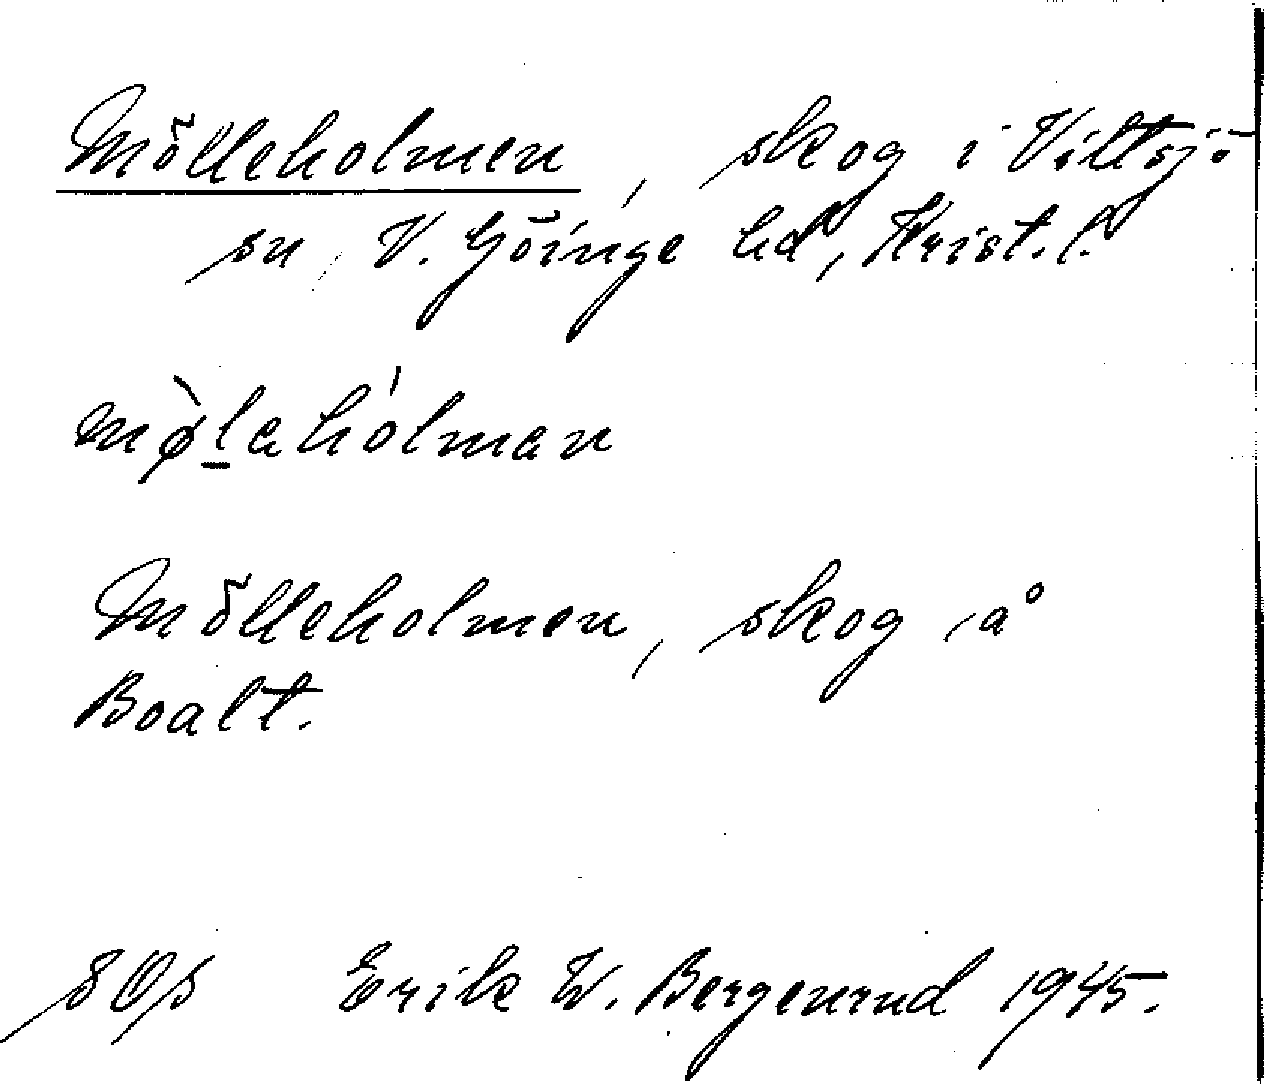 Mölleholmen, skog i Vittsjö
sn, V. Göinge hd, Krist. l.
mø̀l̲ahólman
Mölleholmen, skog å
Boalt.
Erik W. Bergenrud 1945.